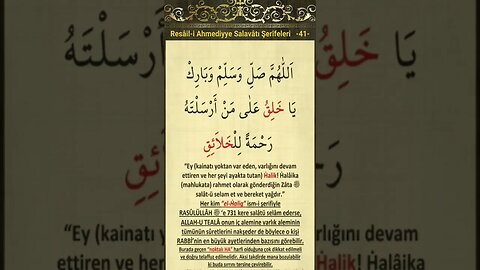 Resâil-i Ahmediyye Salavâtı Şerifeleri -41-
اَللّٰهُمَّ صَلِّ وَسَلِّمْ وَبَارِكْ
يَا خَلِقُ عَلٰى مَنْ أَرْسَلْتَهُ
رَحْمَةً لِلْخَلَائِقِ
"Ey (kainatı yoktan var eden, varlığını devam
ettiren ve her şeyi ayakta tutan) Halik! Halâika
(mahlukata) rahmet olarak gönderdiğin Zâta ﷺ
salât-ü selam et ve bereket yağdır."
Her kim "el-Halig" ism-i şerifiyle
RASÛLÜLLÂH ﷺ 'e 731 kere salâtü selâm ederse,
ALLAH-U TEALÂ onun iç alemine varlık aleminin
tümünün sûretlerini nakşeder de böylece o kişi
RABBİ'nin en büyük ayetlerinden bazısını görebilir.
Burada geçen "noktalı HA" harfi olduğuna çok dikkat edilmeli
ve doğru telaffuz edilmelidir. Aksi takdirde mana bozulabilir
ki buda sırrını tersine çevirebilir.